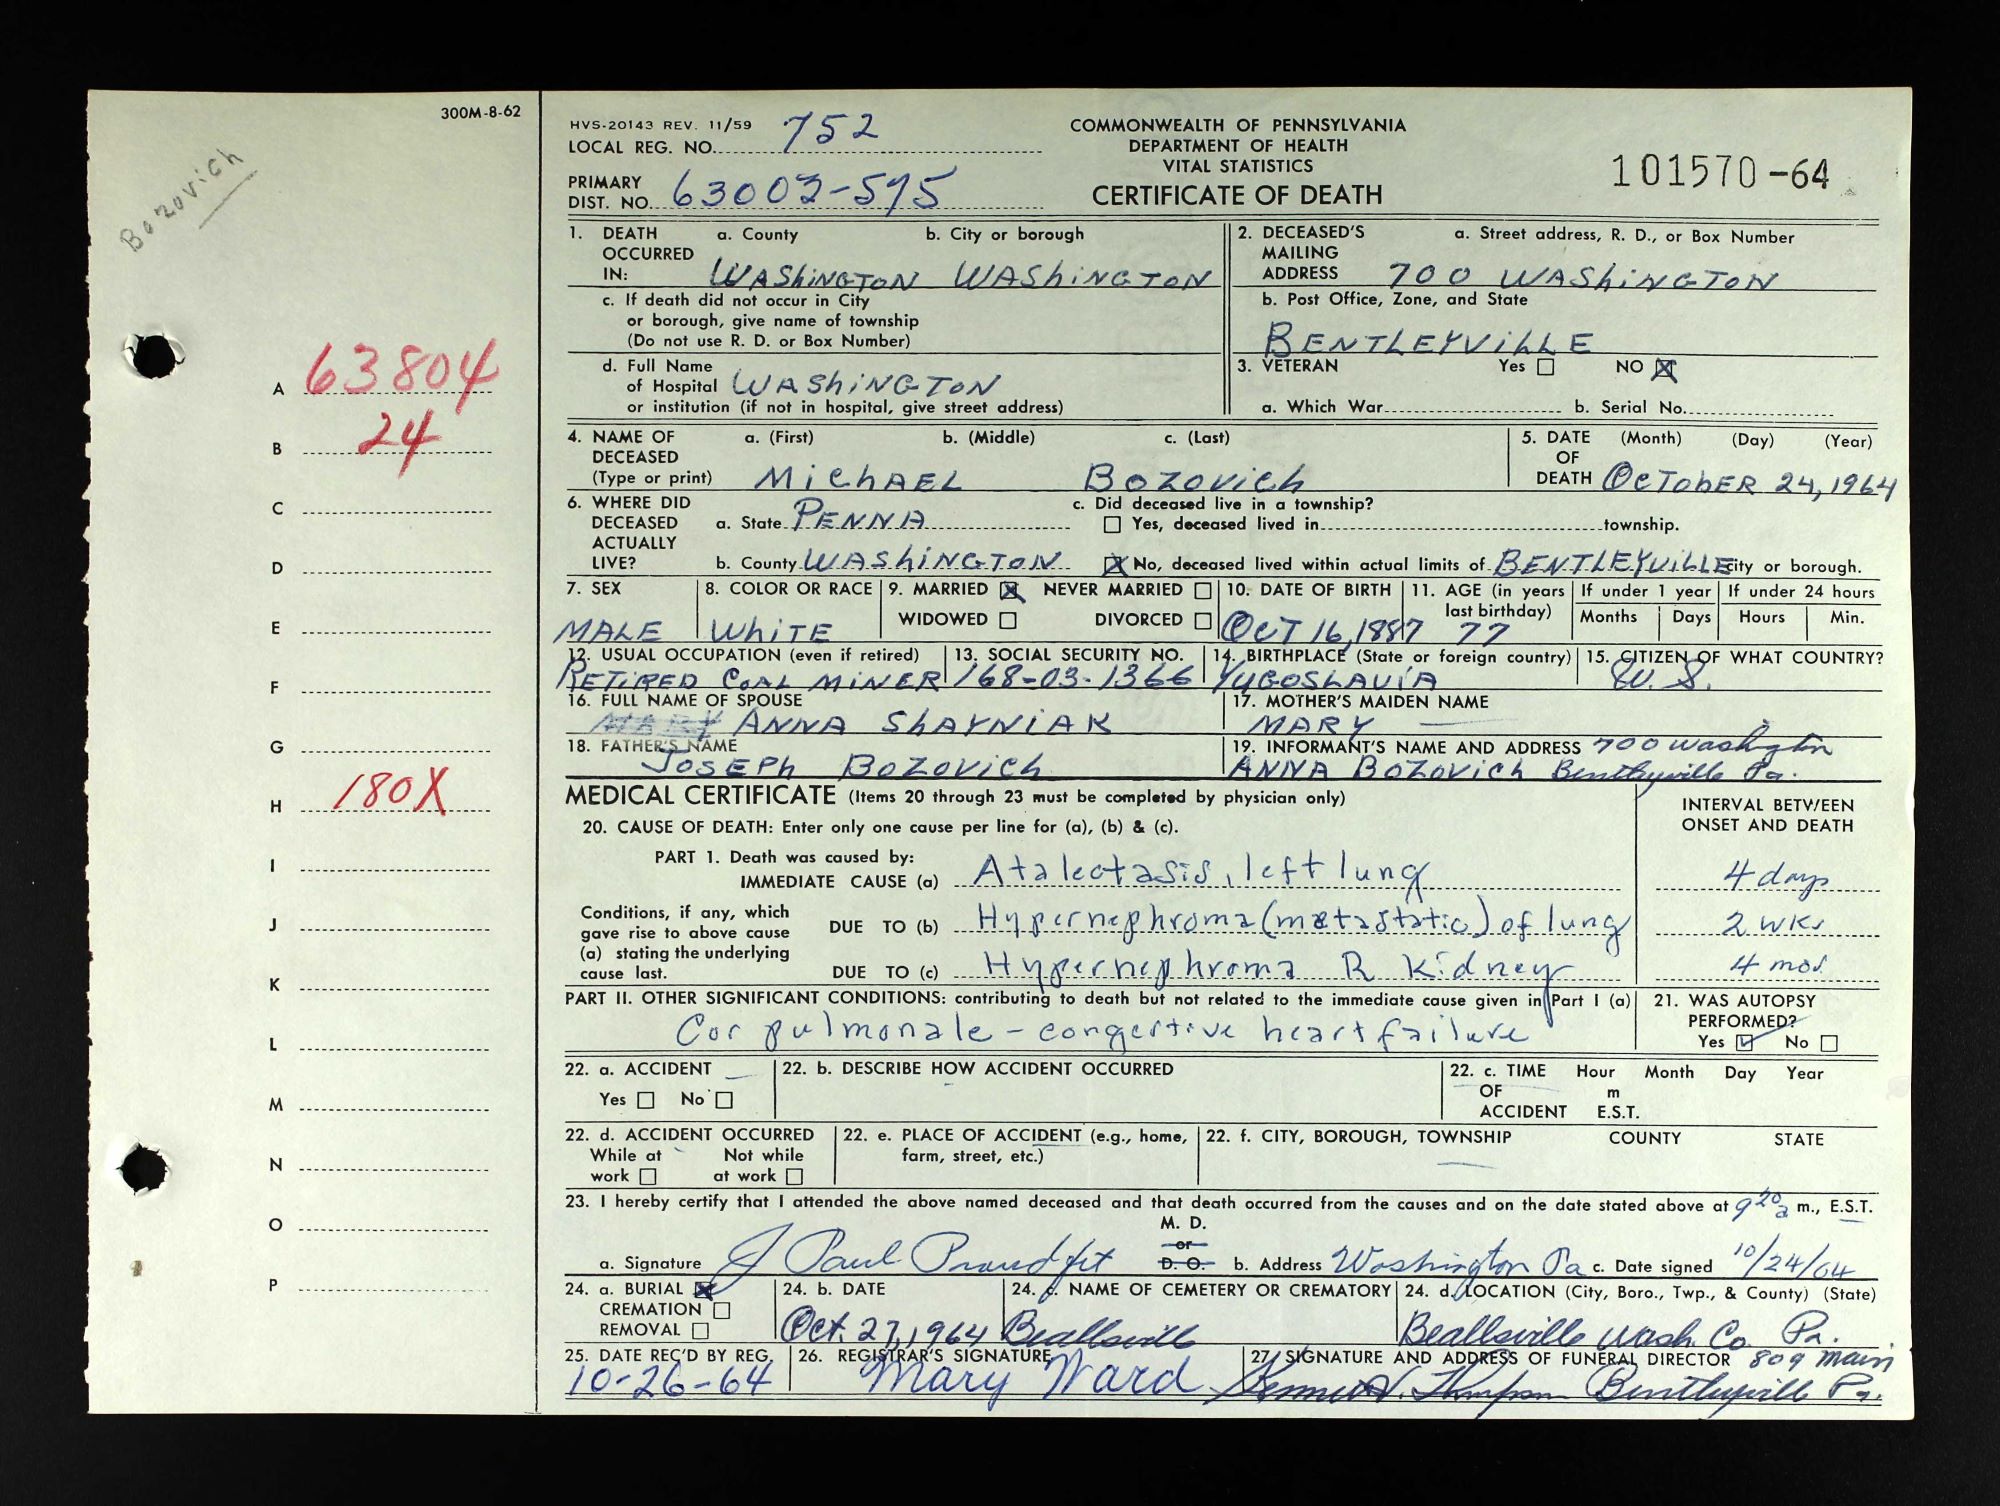 300M-8-62
Bozovich
A 63804
B 24
C
D
E
F
G
H 180X
I
J
K
L
M
N
O
P
HVS-20143 REV. 11/59
LOCAL REG. NO. 752
PRIMARY
DIST. NO. 63002-575
COMMONWEALTH OF PENNSYLVANIA
DEPARTMENT OF HEALTH
VITAL STATISTICS
CERTIFICATE OF DEATH
101570-64
1. DEATH OCCURRED IN: a. County b. City or borough
WAShiNGTON WAShiNGTON
c. If death did not occur in City
or borough, give name of township
(Do not use R. D. or Box Number)
d. Full Name
of Hospital WAShiNGTON
or institution (if not in hospital, give street address)
2. DECEASED'S MAILING ADDRESS a. Street address, R. D., or Box Number
700 WAShiNGTON
b. Post Office, Zone, and State
BENTLEYViLLE
3. VETERAN Yes ☐ NO ☒
a. Which War b. Serial No.
4. NAME OF DECEASED (Type or print) a. (First) b. (Middle) c. (Last)
MiChAEL BOZOVich
5. DATE OF DEATH (Month) (Day) (Year)
OCTObER 24, 1964
6. WHERE DID DECEASED ACTUALLY LIVE?
a. State PENNA
b. County WAShiNGTON
c. Did deceased live in a township?
☐ Yes, deceased lived in township.
☒ No, deceased lived within actual limits of BENTLEYViLLE city or borough.
7. SEX
MALE
8. COLOR OR RACE
WhiTE
9. MARRIED ☒ NEVER MARRIED ☐
WIDOWED ☐ DIVORCED ☐
10. DATE OF BIRTH
OCT 16, 1887
11. AGE (in years last birthday)
77
If under 1 year
Months Days
If under 24 hours
Hours Min.
12. USUAL OCCUPATION (even if retired)
RETiRED COAL MiNER
13. SOCIAL SECURITY NO.
168-03-1366
14. BIRTHPLACE (State or foreign country)
YUGOSLAViA
15. CITIZEN OF WHAT COUNTRY?
U. S.
16. FULL NAME OF SPOUSE
MARY ANNA ShAYNiAK
17. MOTHER'S MAIDEN NAME
MARY —
18. FATHER'S NAME
JOSEPh BOZOVich
19. INFORMANT'S NAME AND ADDRESS 700 Washington
ANNA BOZOVich Bentleyville Pa.
MEDICAL CERTIFICATE (Items 20 through 23 must be completed by physician only)
20. CAUSE OF DEATH: Enter only one cause per line for (a), (b) & (c).
INTERVAL BETWEEN
ONSET AND DEATH
PART 1. Death was caused by:
IMMEDIATE CAUSE (a) Atalectasis, left lung 4 days
Conditions, if any, which
gave rise to above cause
(a) stating the underlying
cause last.
DUE TO (b) Hypernephroma (metastatic) of lung 2 wks
DUE TO (c) Hypernephroma R Kidney 4 mos.
PART II. OTHER SIGNIFICANT CONDITIONS: contributing to death but not related to the immediate cause given in Part I (a)
Cor pulmonale - congestive heart failure
21. WAS AUTOPSY
PERFORMED?
Yes ☑ No ☐
22. a. ACCIDENT
Yes ☐ No ☐
22. b. DESCRIBE HOW ACCIDENT OCCURRED
22. c. TIME OF ACCIDENT Hour Month Day Year
m
E.S.T.
22. d. ACCIDENT OCCURRED
While at work ☐ Not while at work ☐
22. e. PLACE OF ACCIDENT (e.g., home,
farm, street, etc.)
22. f. CITY, BOROUGH, TOWNSHIP COUNTY STATE
23. I hereby certify that I attended the above named deceased and that death occurred from the causes and on the date stated above at 9 20 a m., E.S.T.
a. Signature J Paul Proudfit M. D. or D. O. b. Address Washington Pa c. Date signed 10/24/64
24. a. BURIAL ☒
CREMATION ☐
REMOVAL ☐
24. b. DATE
Oct. 27, 1964
24. c. NAME OF CEMETERY OR CREMATORY
Beallsville
24. d. LOCATION (City, Boro., Twp., & County) (State)
Beallsville Wash. Co Pa.
25. DATE REC'D BY REG.
10-26-64
26. REGISTRAR'S SIGNATURE
Mary Ward
27. SIGNATURE AND ADDRESS OF FUNERAL DIRECTOR 809 Main
Thompson Bentleyville Pa.